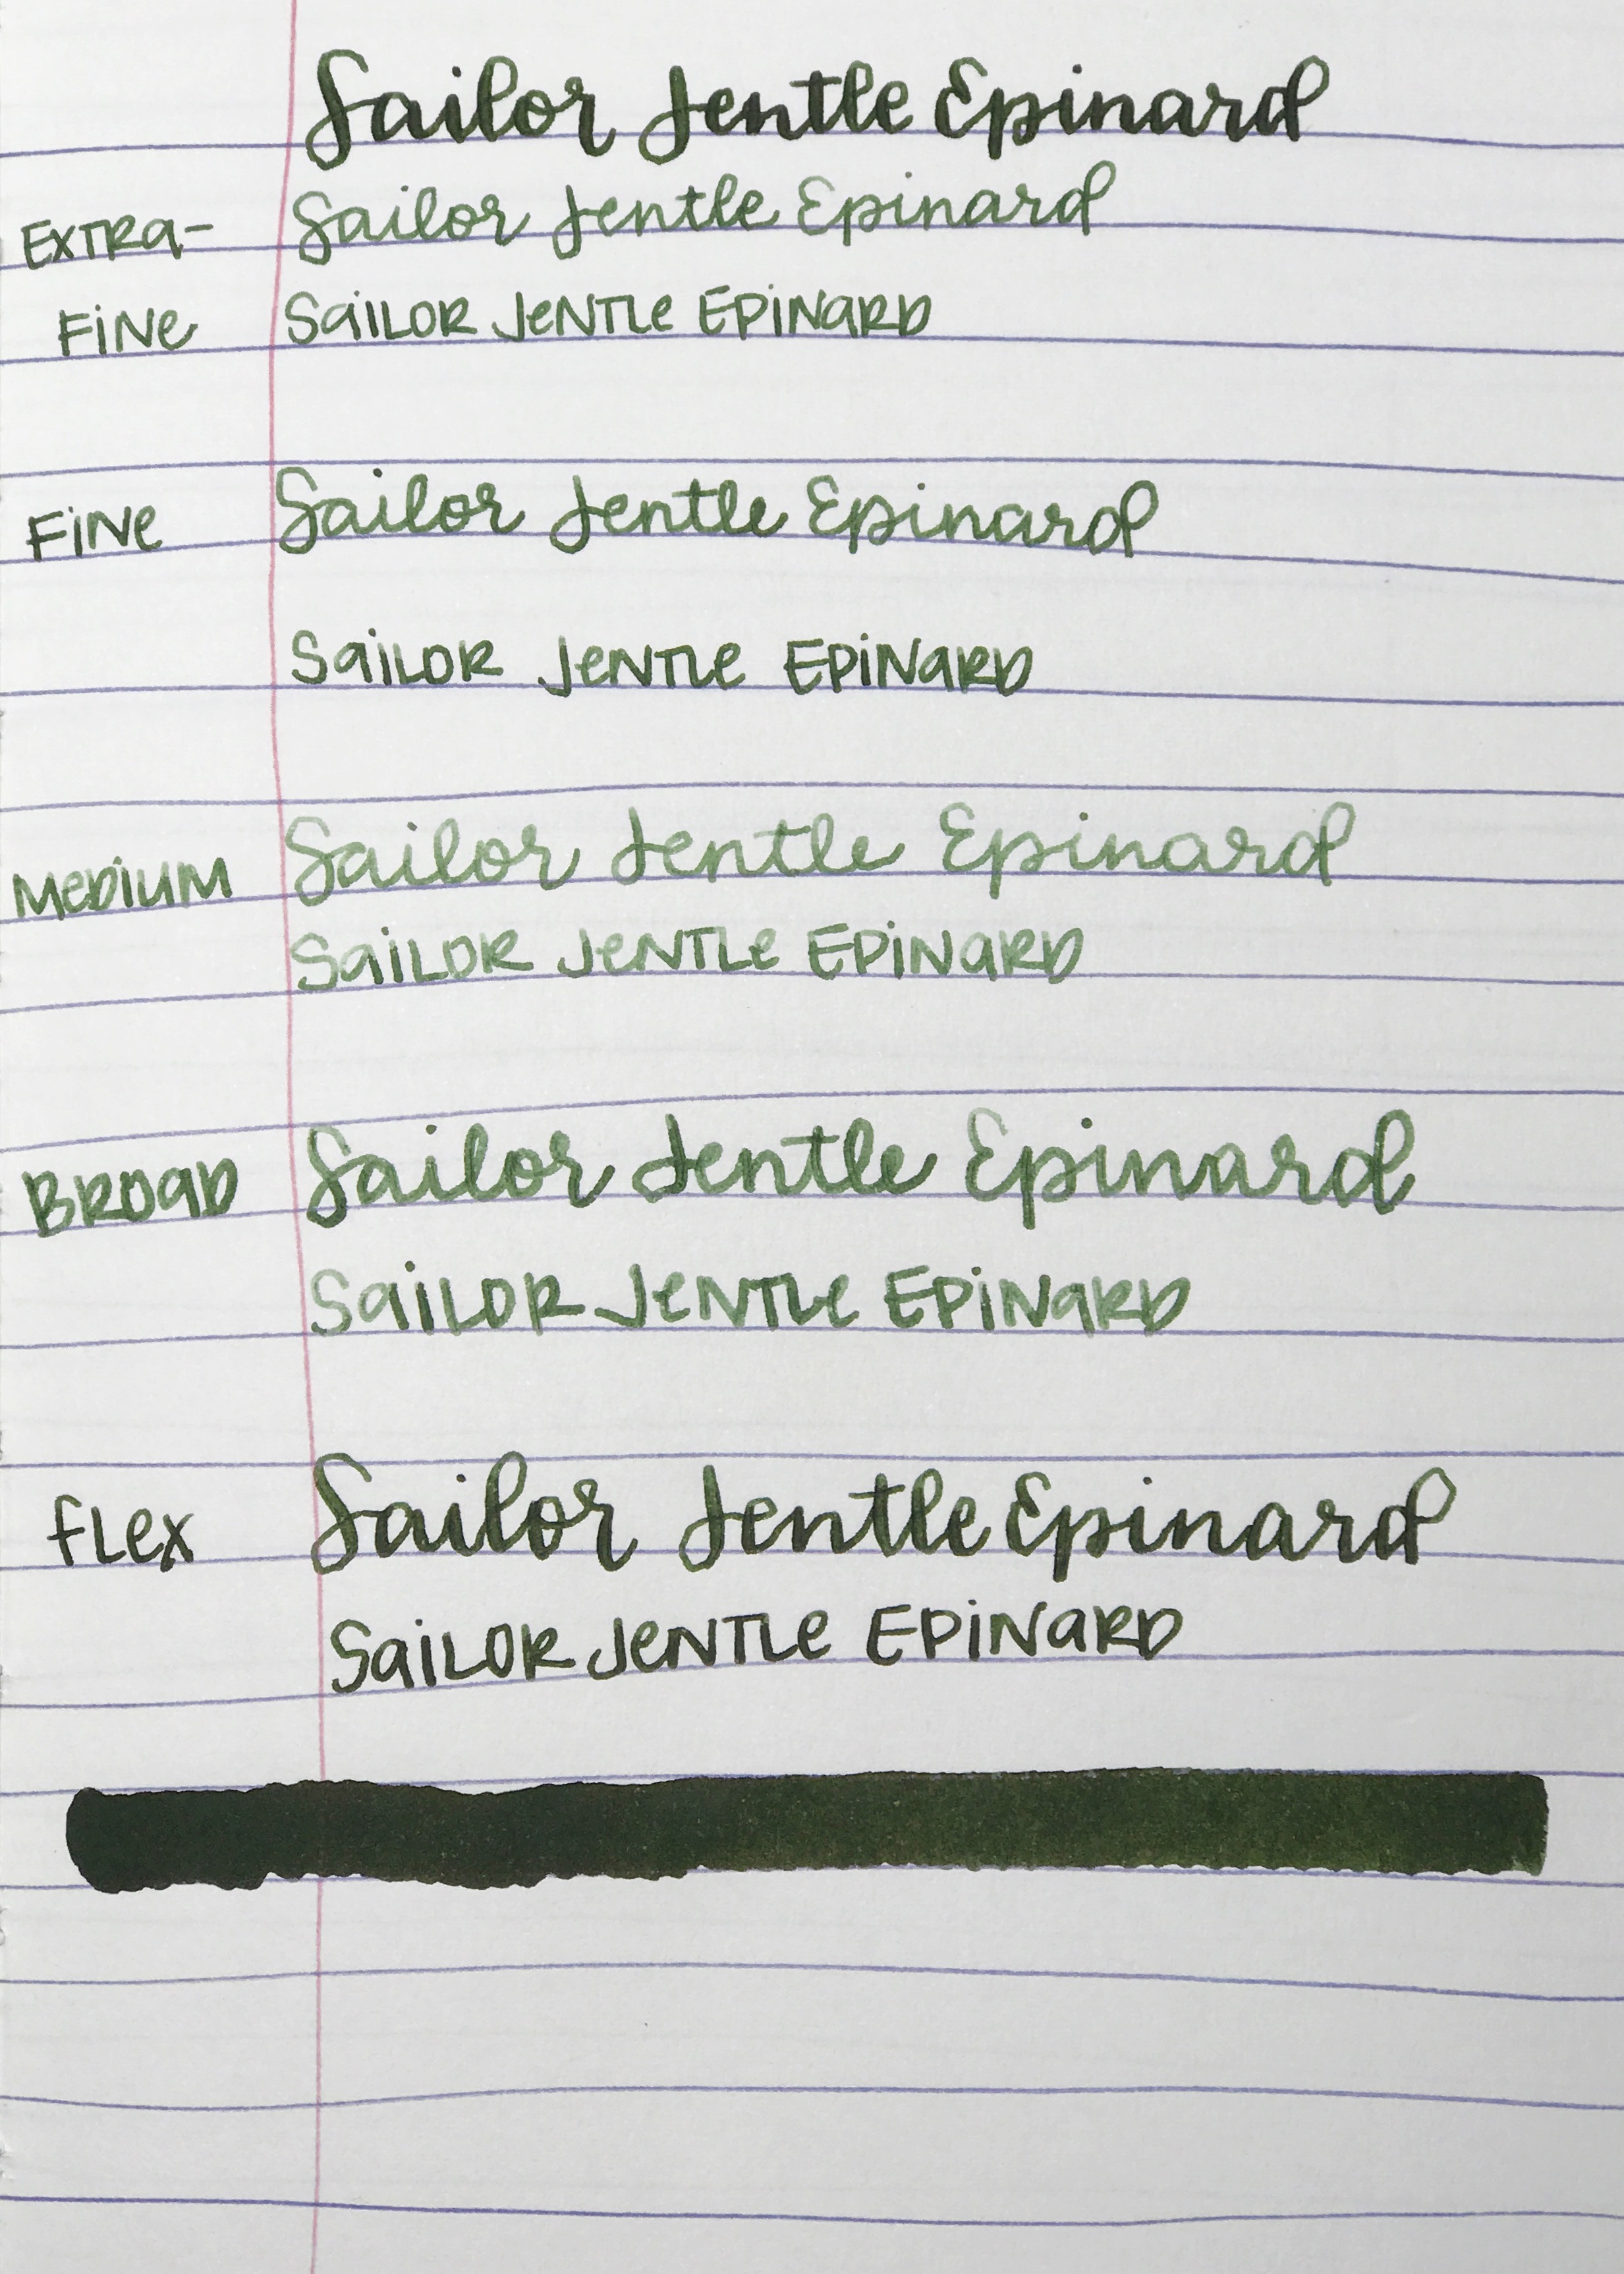 Sailor Jentle Epinard
EXTRA- Sailor Jentle Epinard
FINE SAILOR JENTLE EPINARD
FINE Sailor Jentle Epinard
SAILOR JENTLE EPINARD
MEDIUM Sailor Jentle Epinard
SAILOR JENTLE EPINARD
BROAD Sailor Jentle Epinard
SAILOR JENTLE EPINARD
FLEX Sailor Jentle Epinard
SAILOR JENTLE EPINARD